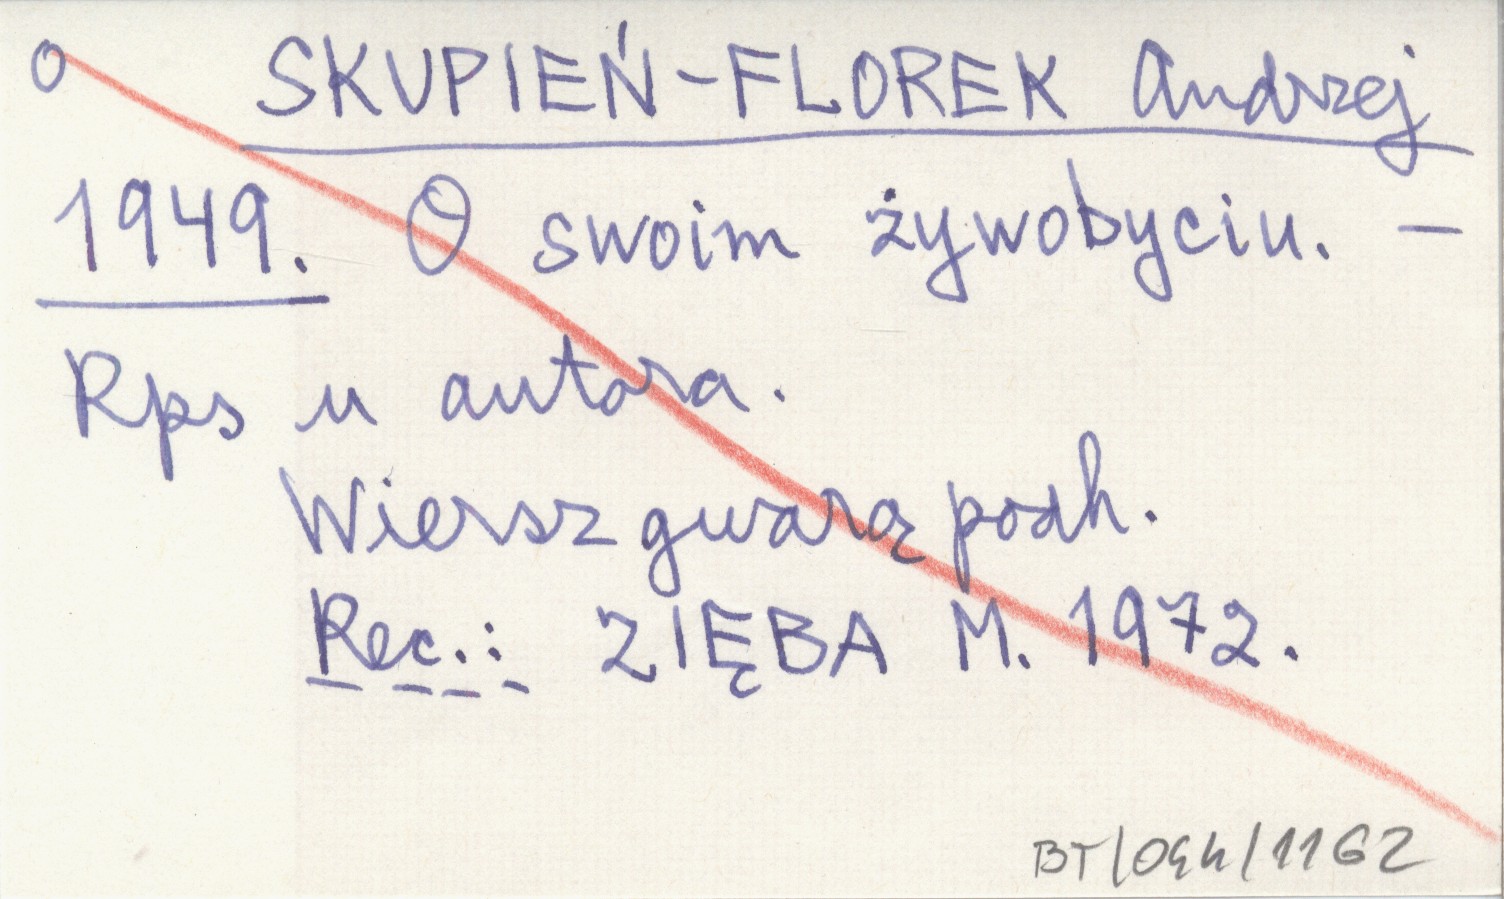 o SKUPIEŃ-FLOREK Andrzej
1949. O swoim żywobyciu. –
Rps u autora.
Wiersz gwarą podh.
Rec.: ZIĘBA M. 1972.
BT/094/1162